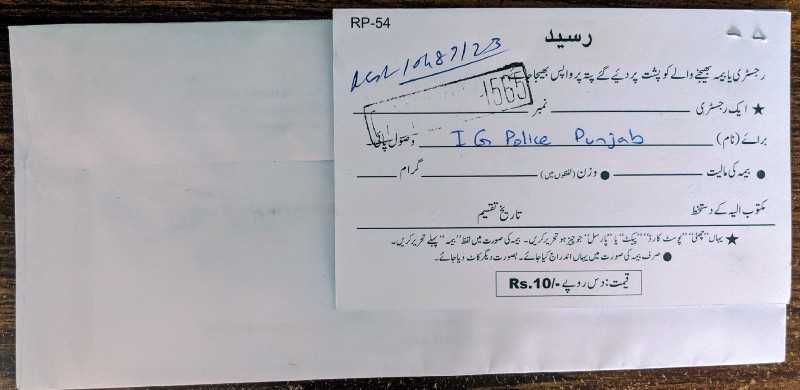 RP-54
رسید
رجسٹری یا بیمہ بھیجنے والے کو پشت پر دیئے گئے پتہ پر واپس بھیجا جائے
1565
★ ایک رجسٹری نمبر
برائے (نام) I G Police Punjab وصول پائی۔
● بیمہ کی مالیت ● وزن (لفظوں میں) گرام
مکتوب الیہ کے دستخط تاریخ تقسیم
★ یہاں "چٹھی" "پوسٹ کارڈ" "پیکٹ" یا "پارسل" جو چیز ہو تحریر کریں۔ بیمہ کی صورت میں لفظ "بیمہ" پہلے تحریر کریں۔
● صرف بیمہ کی صورت میں یہاں اندراج کیا جائے۔ بصورت دیگر کاٹ دیا جائے۔
قیمت: دس روپے Rs.10/-